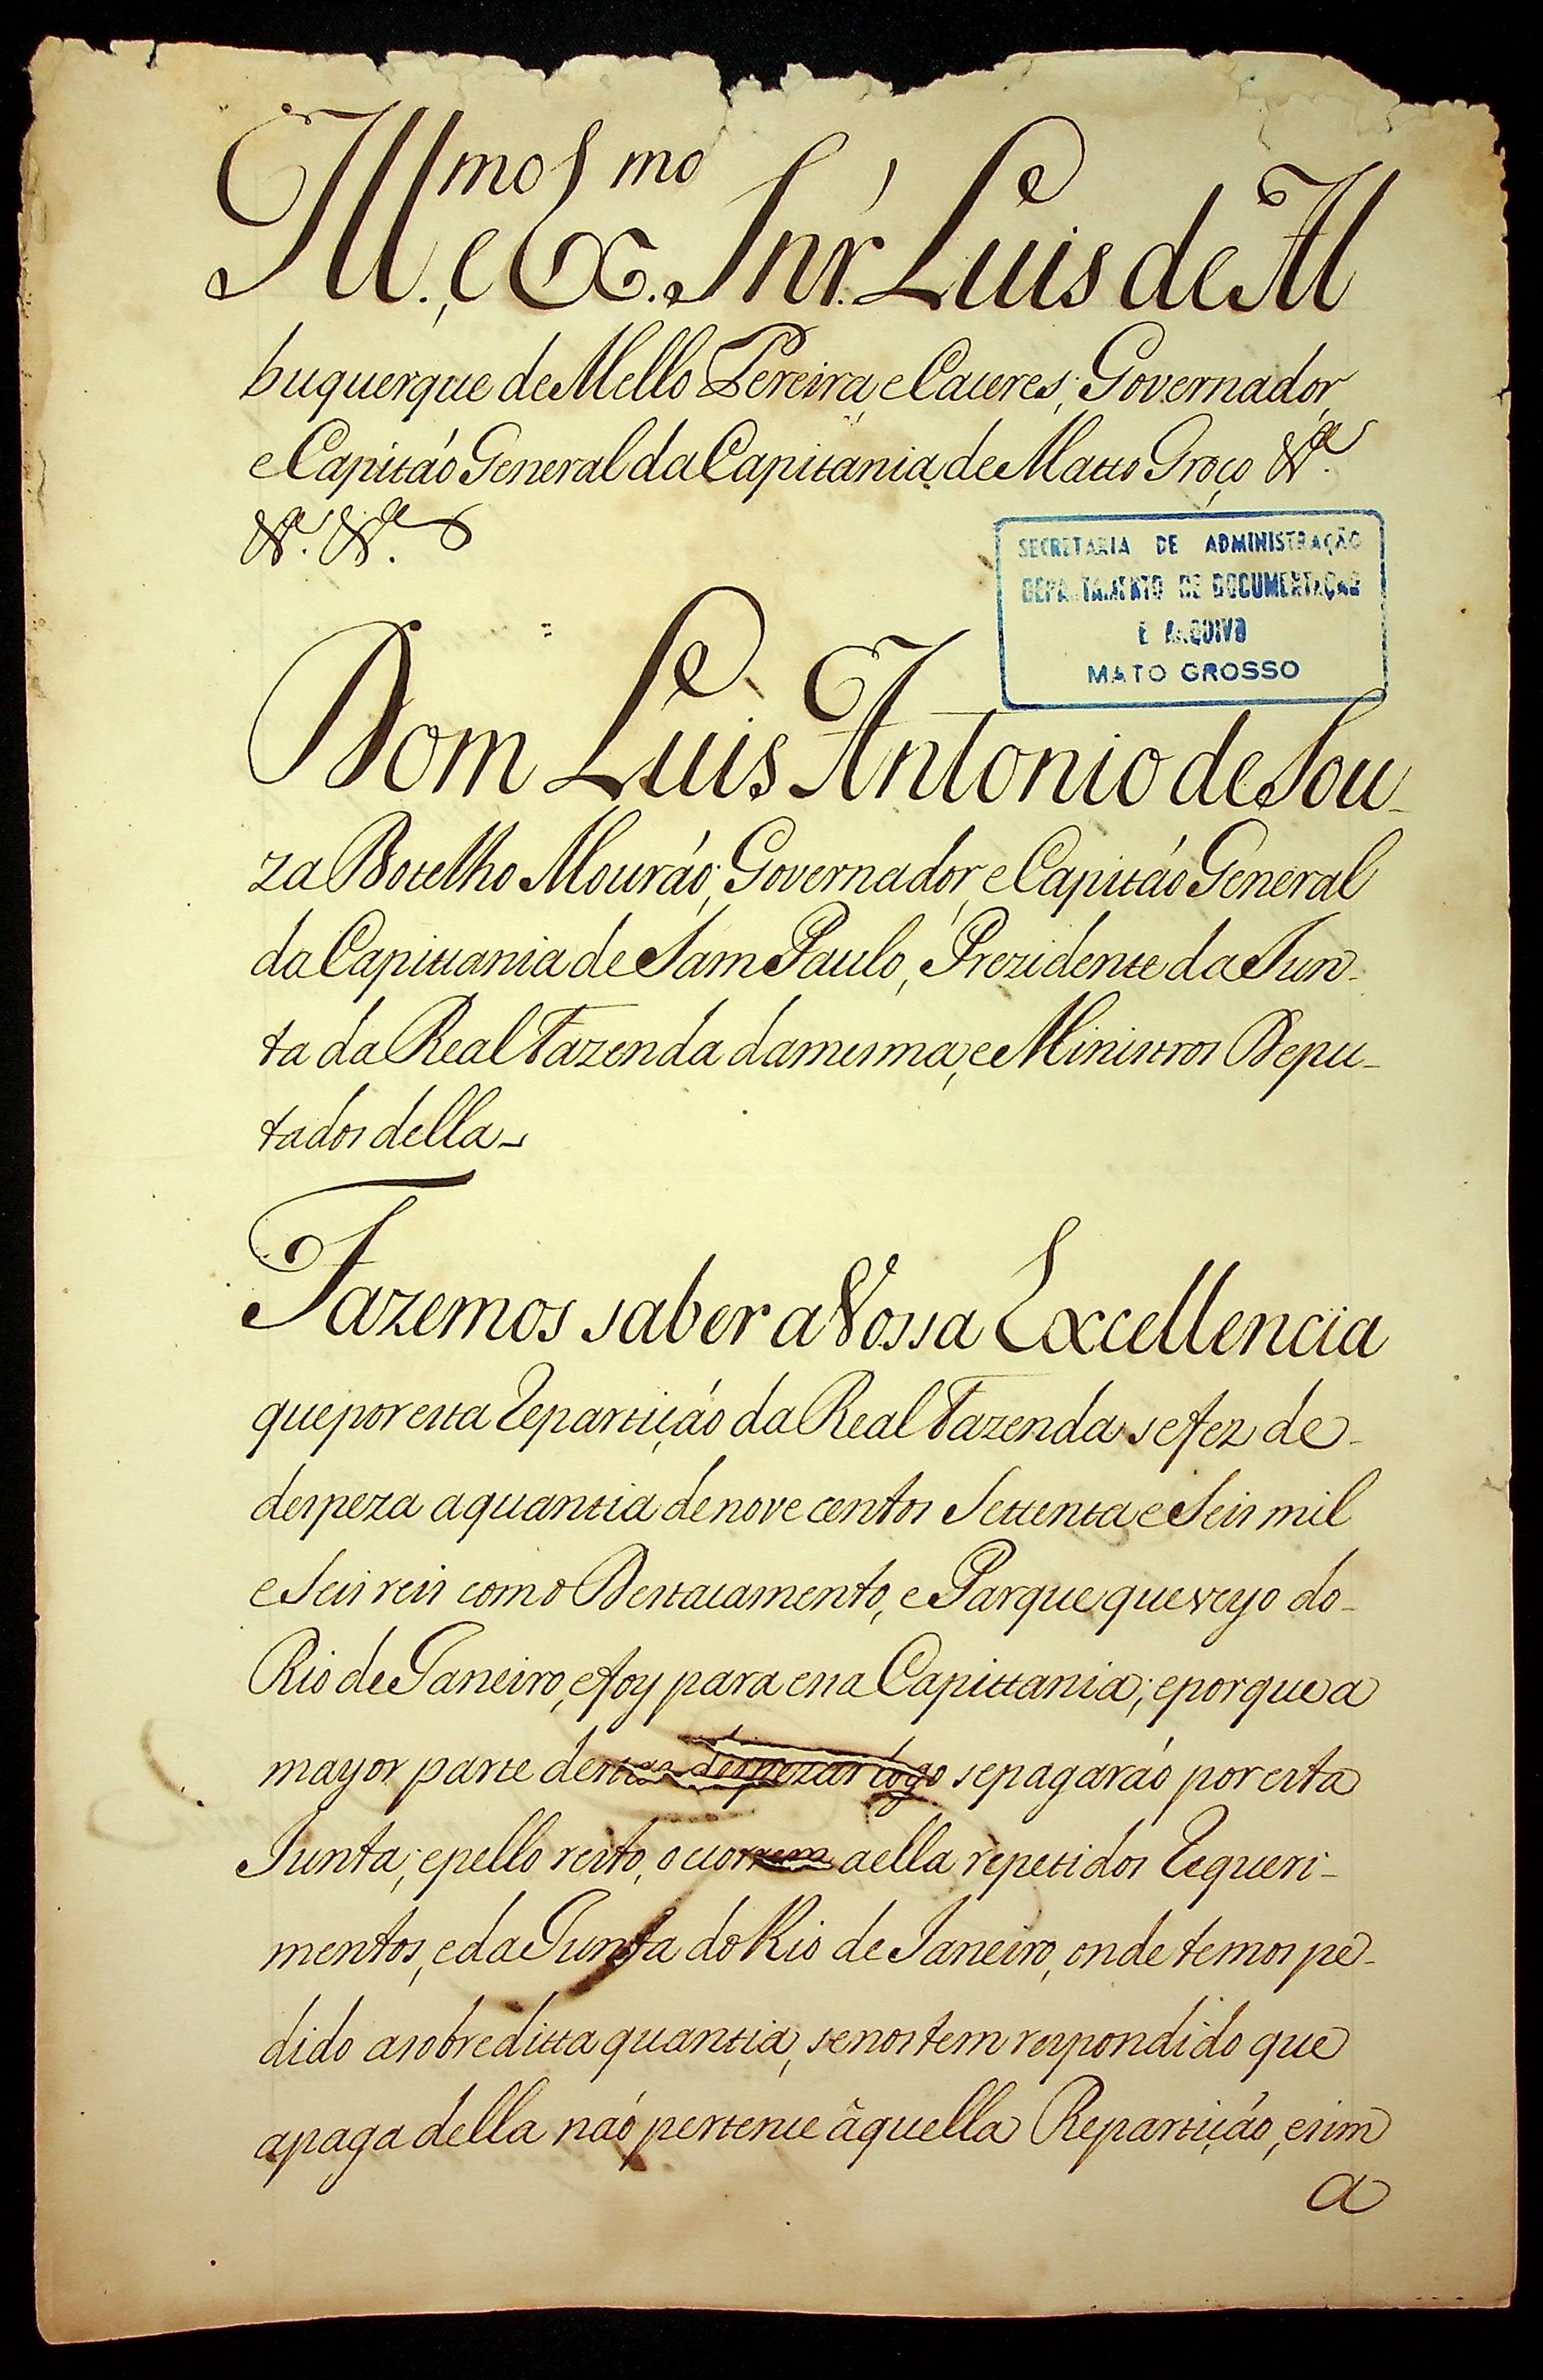 Ill.mo, e Ex.mo Snr. Luis de Al
buquerque de Mello Pereira, e Caceres, Governador,
e Capitaõ General da Capitania de Matto Groço &.ª
&.ª &.ª
SECRETARIA DE ADMINISTRAÇÃO
DEPARTAMENTO DE DOCUMENTAÇÃO
E ARQUIVO
MATO GROSSO
Dom Luis Antonio de Sou-
za Botelho Mouraõ, Governador, e Capitaõ General
da Capittania de Sam Paulo, Prezidente da Jun-
ta da Real Fazenda da mesma, e Ministros Depu-
tados della
Fazemos saber a Vossa Excellencia
que por esta Repartiçaõ da Real Fazenda se fez de
despeza a quantia de nove centos Settenta e Seis mil
e Seis reis com o Destacamento, e Parque que veyo do
Rio de Janeiro, e foy para essa Capittania; e porque a
mayor parte destas despezas logo se pagaraõ por esta
Junta; e pello resto, ocorrem a ella repetidos Requeri-
mentos, e da Junta do Rio de Janeiro, onde temos pe-
dido a sobreditta quantia, se nos tem respondido que
a paga della naõ pertence àquella Repartiçaõ, e sim
a